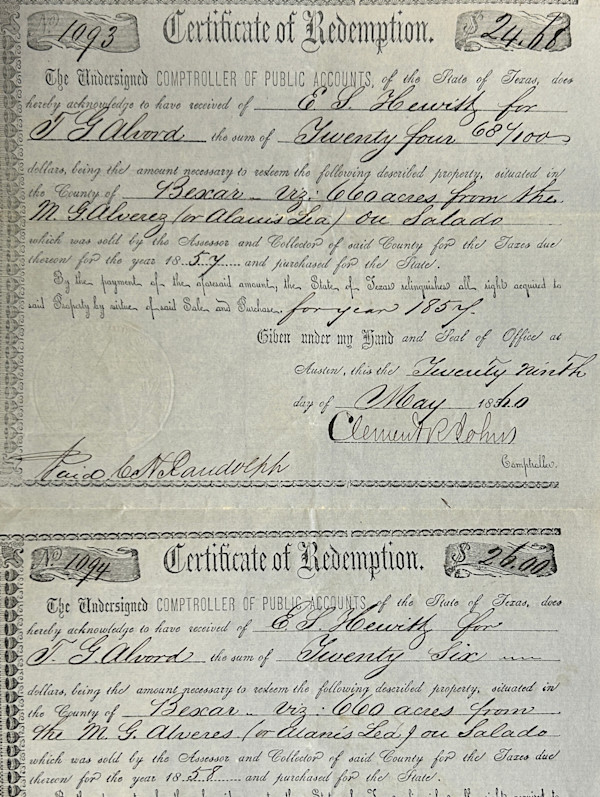 No 1093 Certificate of Redemption. $24.68
The Undersigned COMPTROLLER OF PUBLIC ACCOUNTS, of the State of Texas, does
hereby acknowledge to have received of E S. Hewitt for
T G Alvord the sum of Twenty four 68/100
dollars, being the amount necessary to redeem the following described property, situated in
the County of Bexar viz: 660 acres from the
M G Alverez (or Alanis Lea) on Salado
which was sold by the Assessor and Collector of said County for the Taxes due
thereon for the year 1857 and purchased for the State.
By the payment of the aforesaid amount, the State of Texas relinquishes all right acquired to
said Property by virtue of said Sale and Purchase. for year 1857.
Given under my Hand and Seal of Office at
Austin, this the Twenty Ninth
day of May 1860
Clement R Johns
Comptroller.
Paid. C H Randolph
No 1094 Certificate of Redemption. $26.00
The Undersigned COMPTROLLER OF PUBLIC ACCOUNTS, of the State of Texas, does
hereby acknowledge to have received of E S. Hewitt for
T. G. Alvord the sum of Twenty Six
dollars, being the amount necessary to redeem the following described property, situated in
the County of Bexar viz: 660 acres from
the M G Alveres (or Alanis Lea) on Salado
which was sold by the Assessor and Collector of said County for the Taxes due
thereon for the year 1858 and purchased for the State.